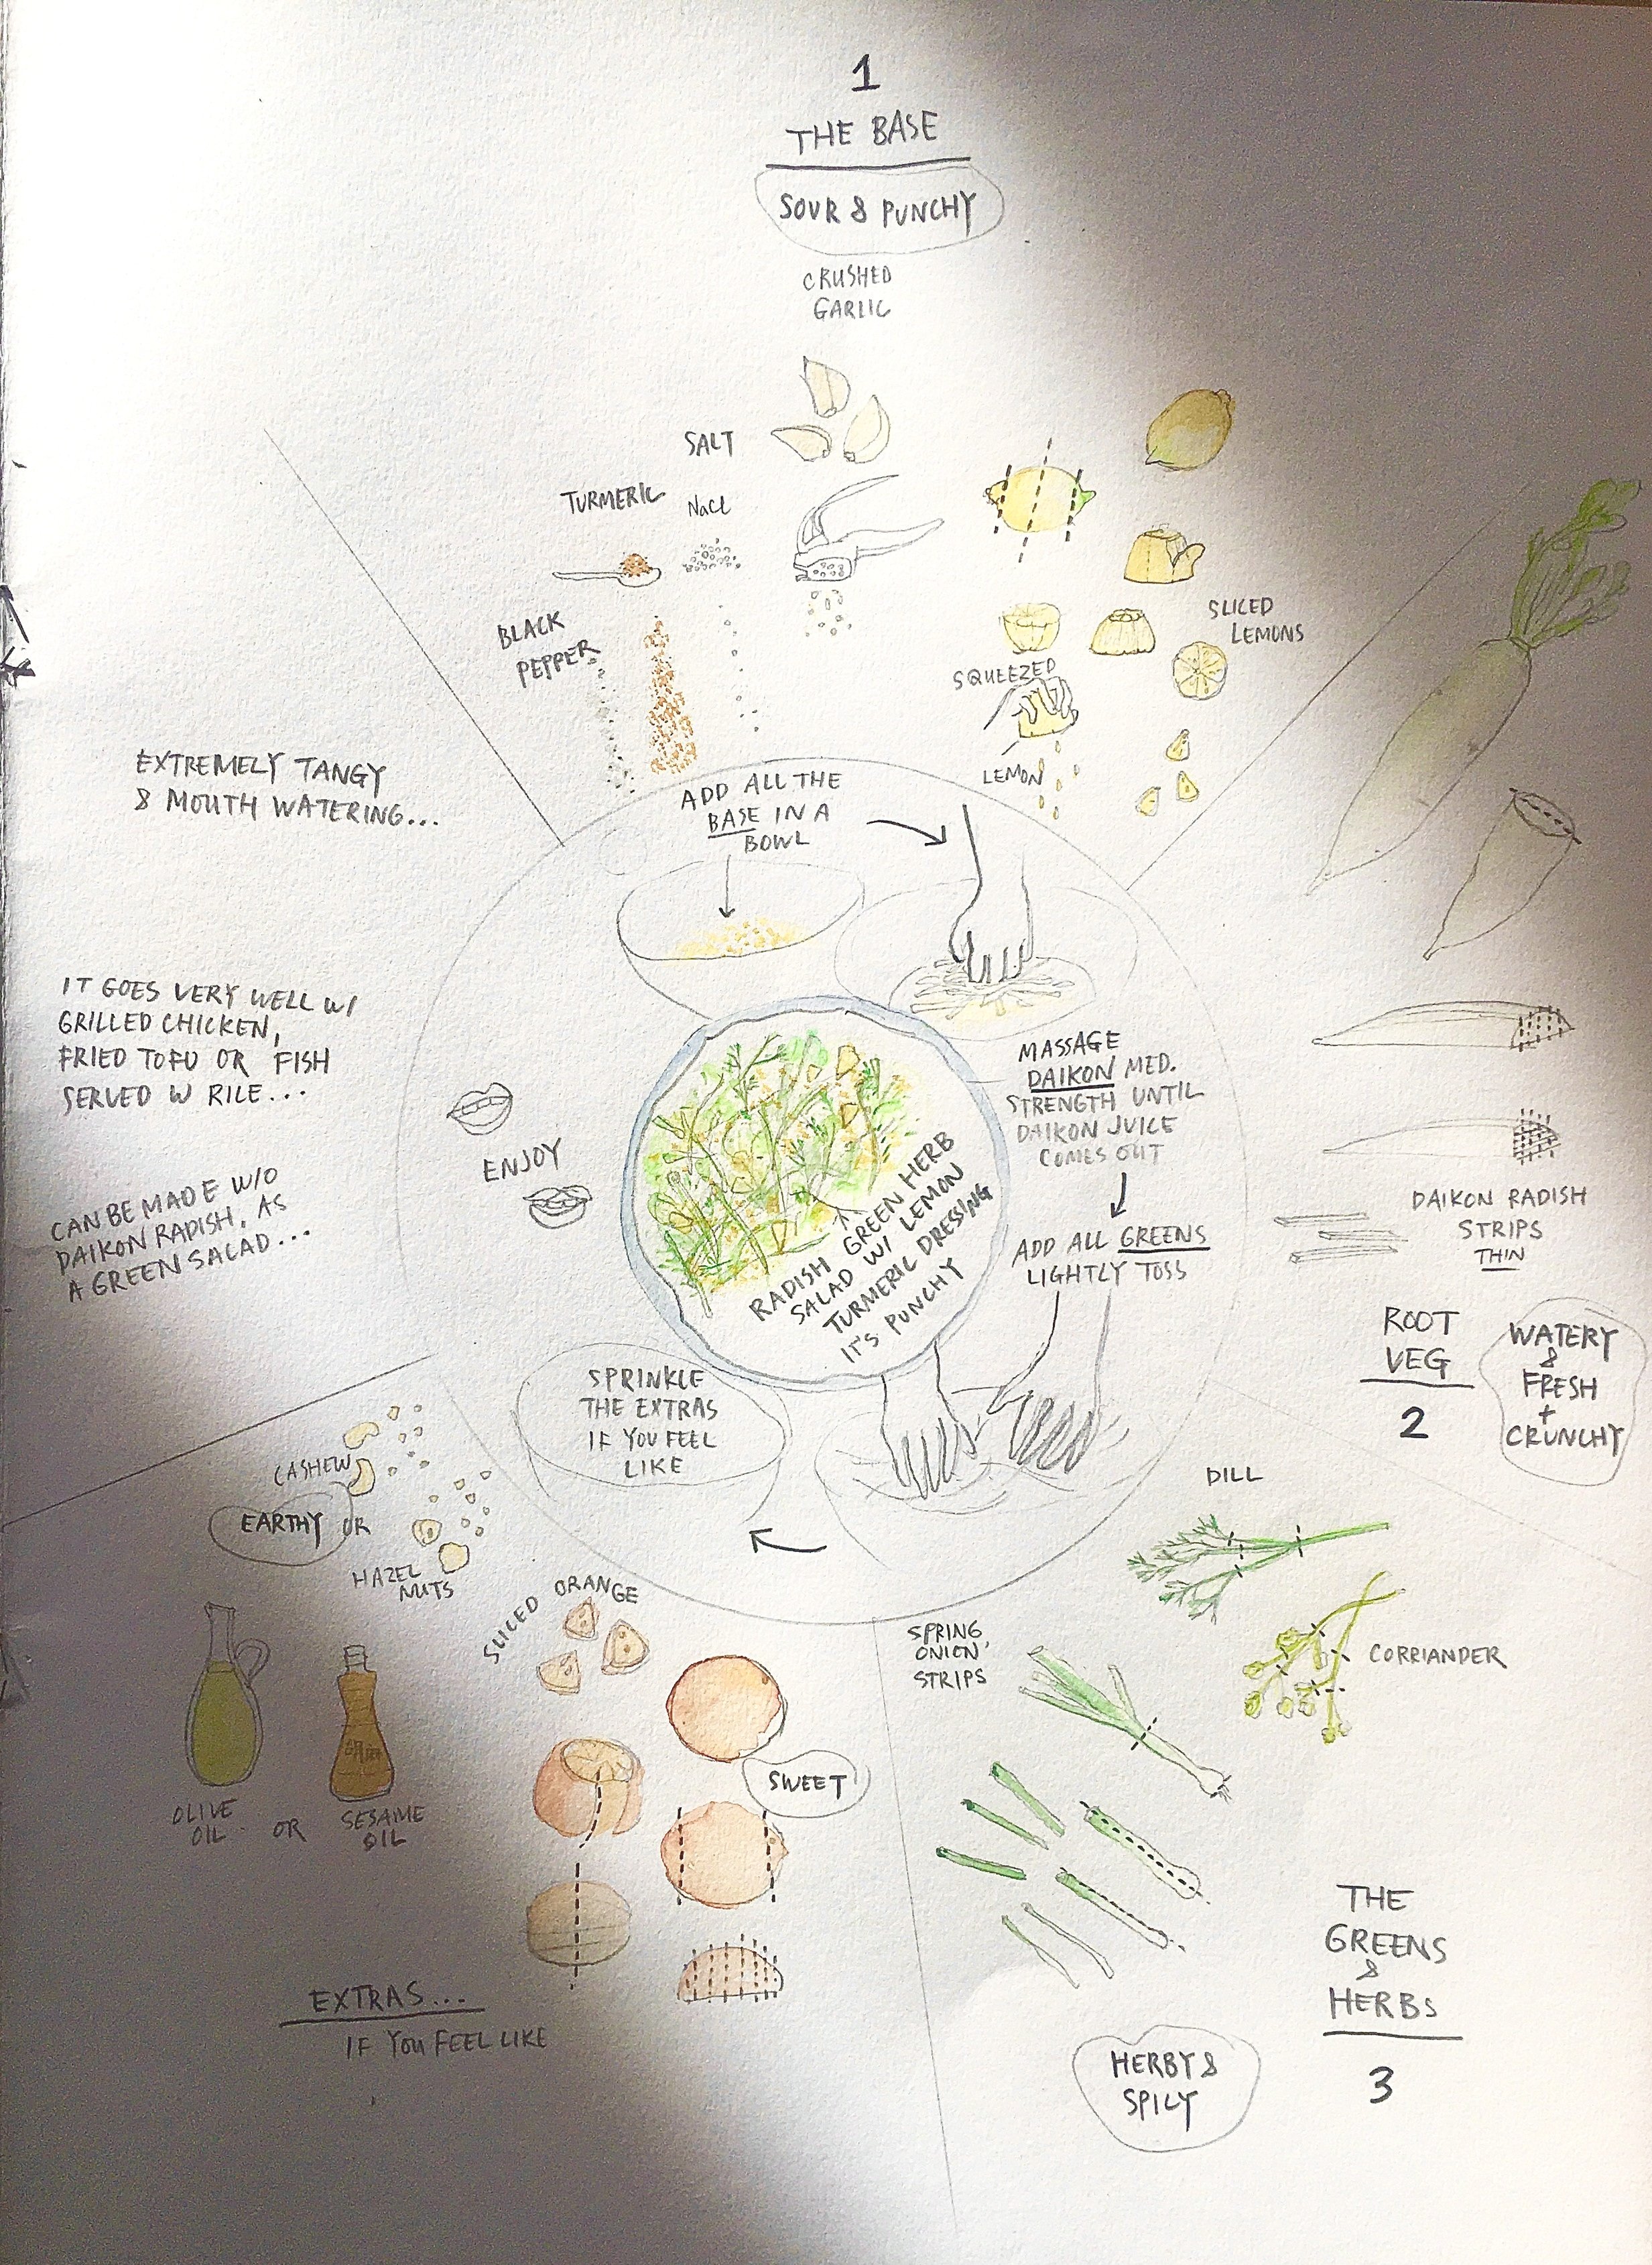 1
THE BASE
SOUR & PUNCHY
CRUSHED
GARLIC
SALT
NaCl
TURMERIC
BLACK
PEPPER
SLICED
LEMONS
SQUEEZED
LEMON
ADD ALL THE
BASE IN A
BOWL
MASSAGE
DAIKON MED.
STRENGTH UNTIL
DAIKON JUICE
COMES OUT
ADD ALL GREENS
LIGHTLY TOSS
SPRINKLE
THE EXTRAS
IF YOU FEEL
LIKE
ENJOY
RADISH GREEN HERB
SALAD W/ LEMON
TURMERIC DRESSING
IT'S PUNCHY
DAIKON RADISH
STRIPS
THIN
ROOT
VEG
2
WATERY
&
FRESH
+
CRUNCHY
DILL
CORRIANDER
SPRING
ONION
STRIPS
THE
GREENS
&
HERBS
3
HERBY &
SPICY
CASHEW
EARTHY OR
HAZEL
NUTS
SLICED ORANGE
SWEET
OLIVE
OIL
OR
SESAME
OIL
EXTRAS...
IF YOU FEEL LIKE
EXTREMELY TANGY
& MOUTH WATERING...
IT GOES VERY WELL W/
GRILLED CHICKEN,
FRIED TOFU OR FISH
SERVED W RICE...
CAN BE MADE W/O
DAIKON RADISH, AS
A GREEN SALAD...